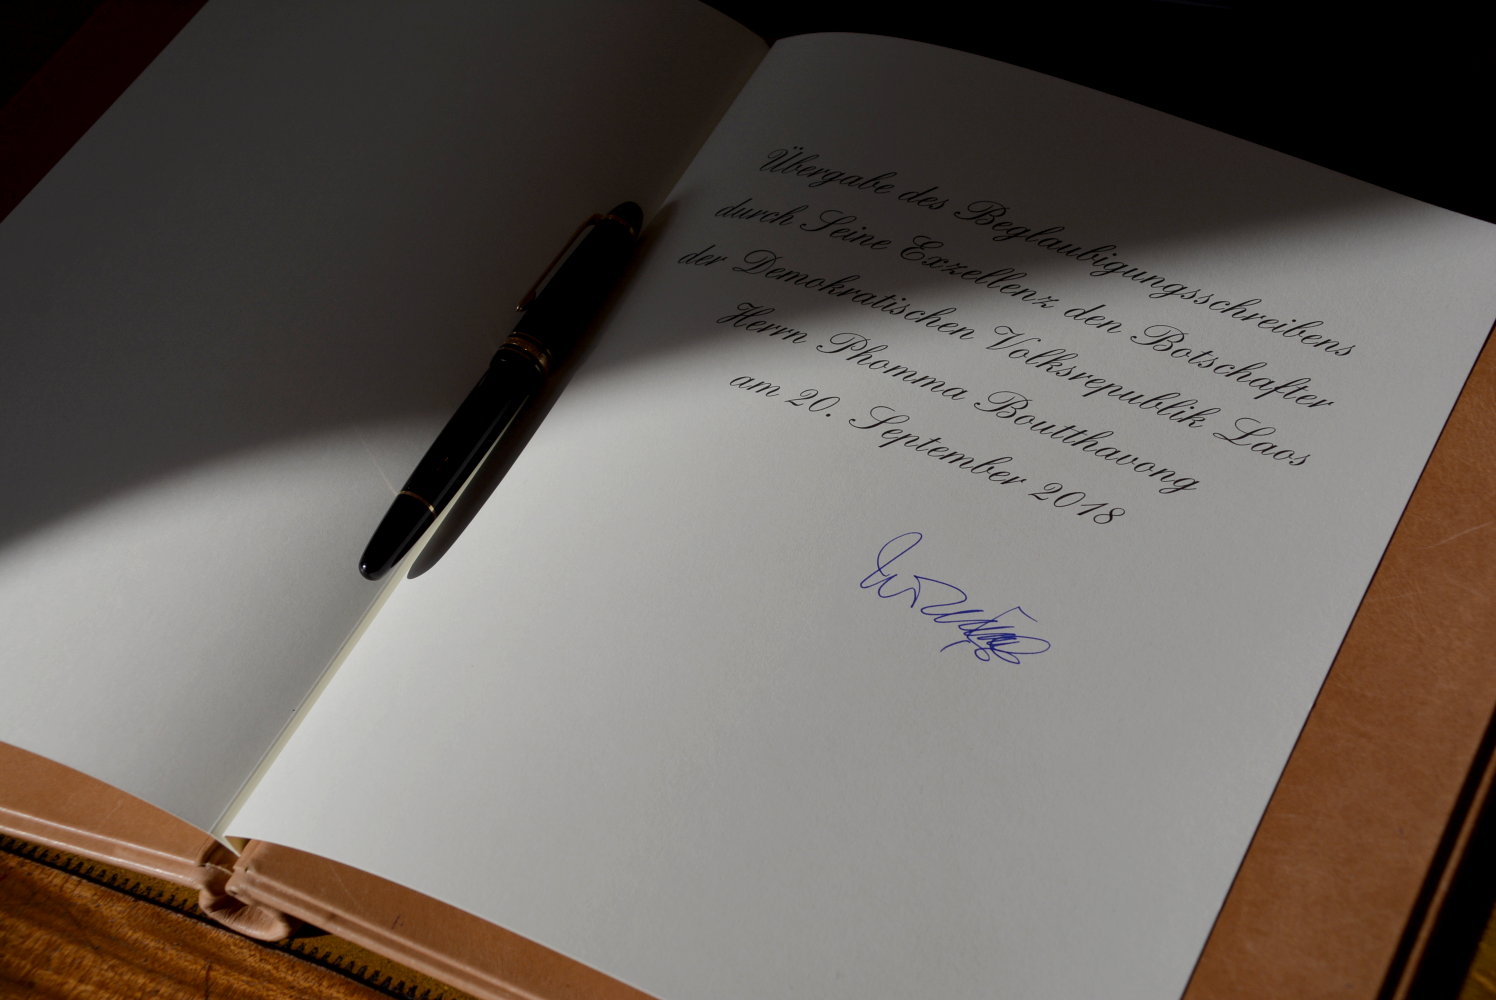 Übergabe des Beglaubigungsschreibens
durch Seine Exzellenz den Botschafter
der Demokratischen Volksrepublik Laos
Herrn Phomma Boutthavong
am 20. September 2018